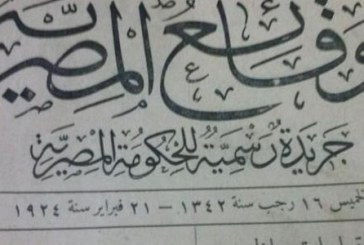 وقايع المصرية
جريدة رسمية للحكومة المصرية
خميس ١٦ رجب سنة ١٣٤٢ – ٢١ فبراير سنة ١٩٢٤